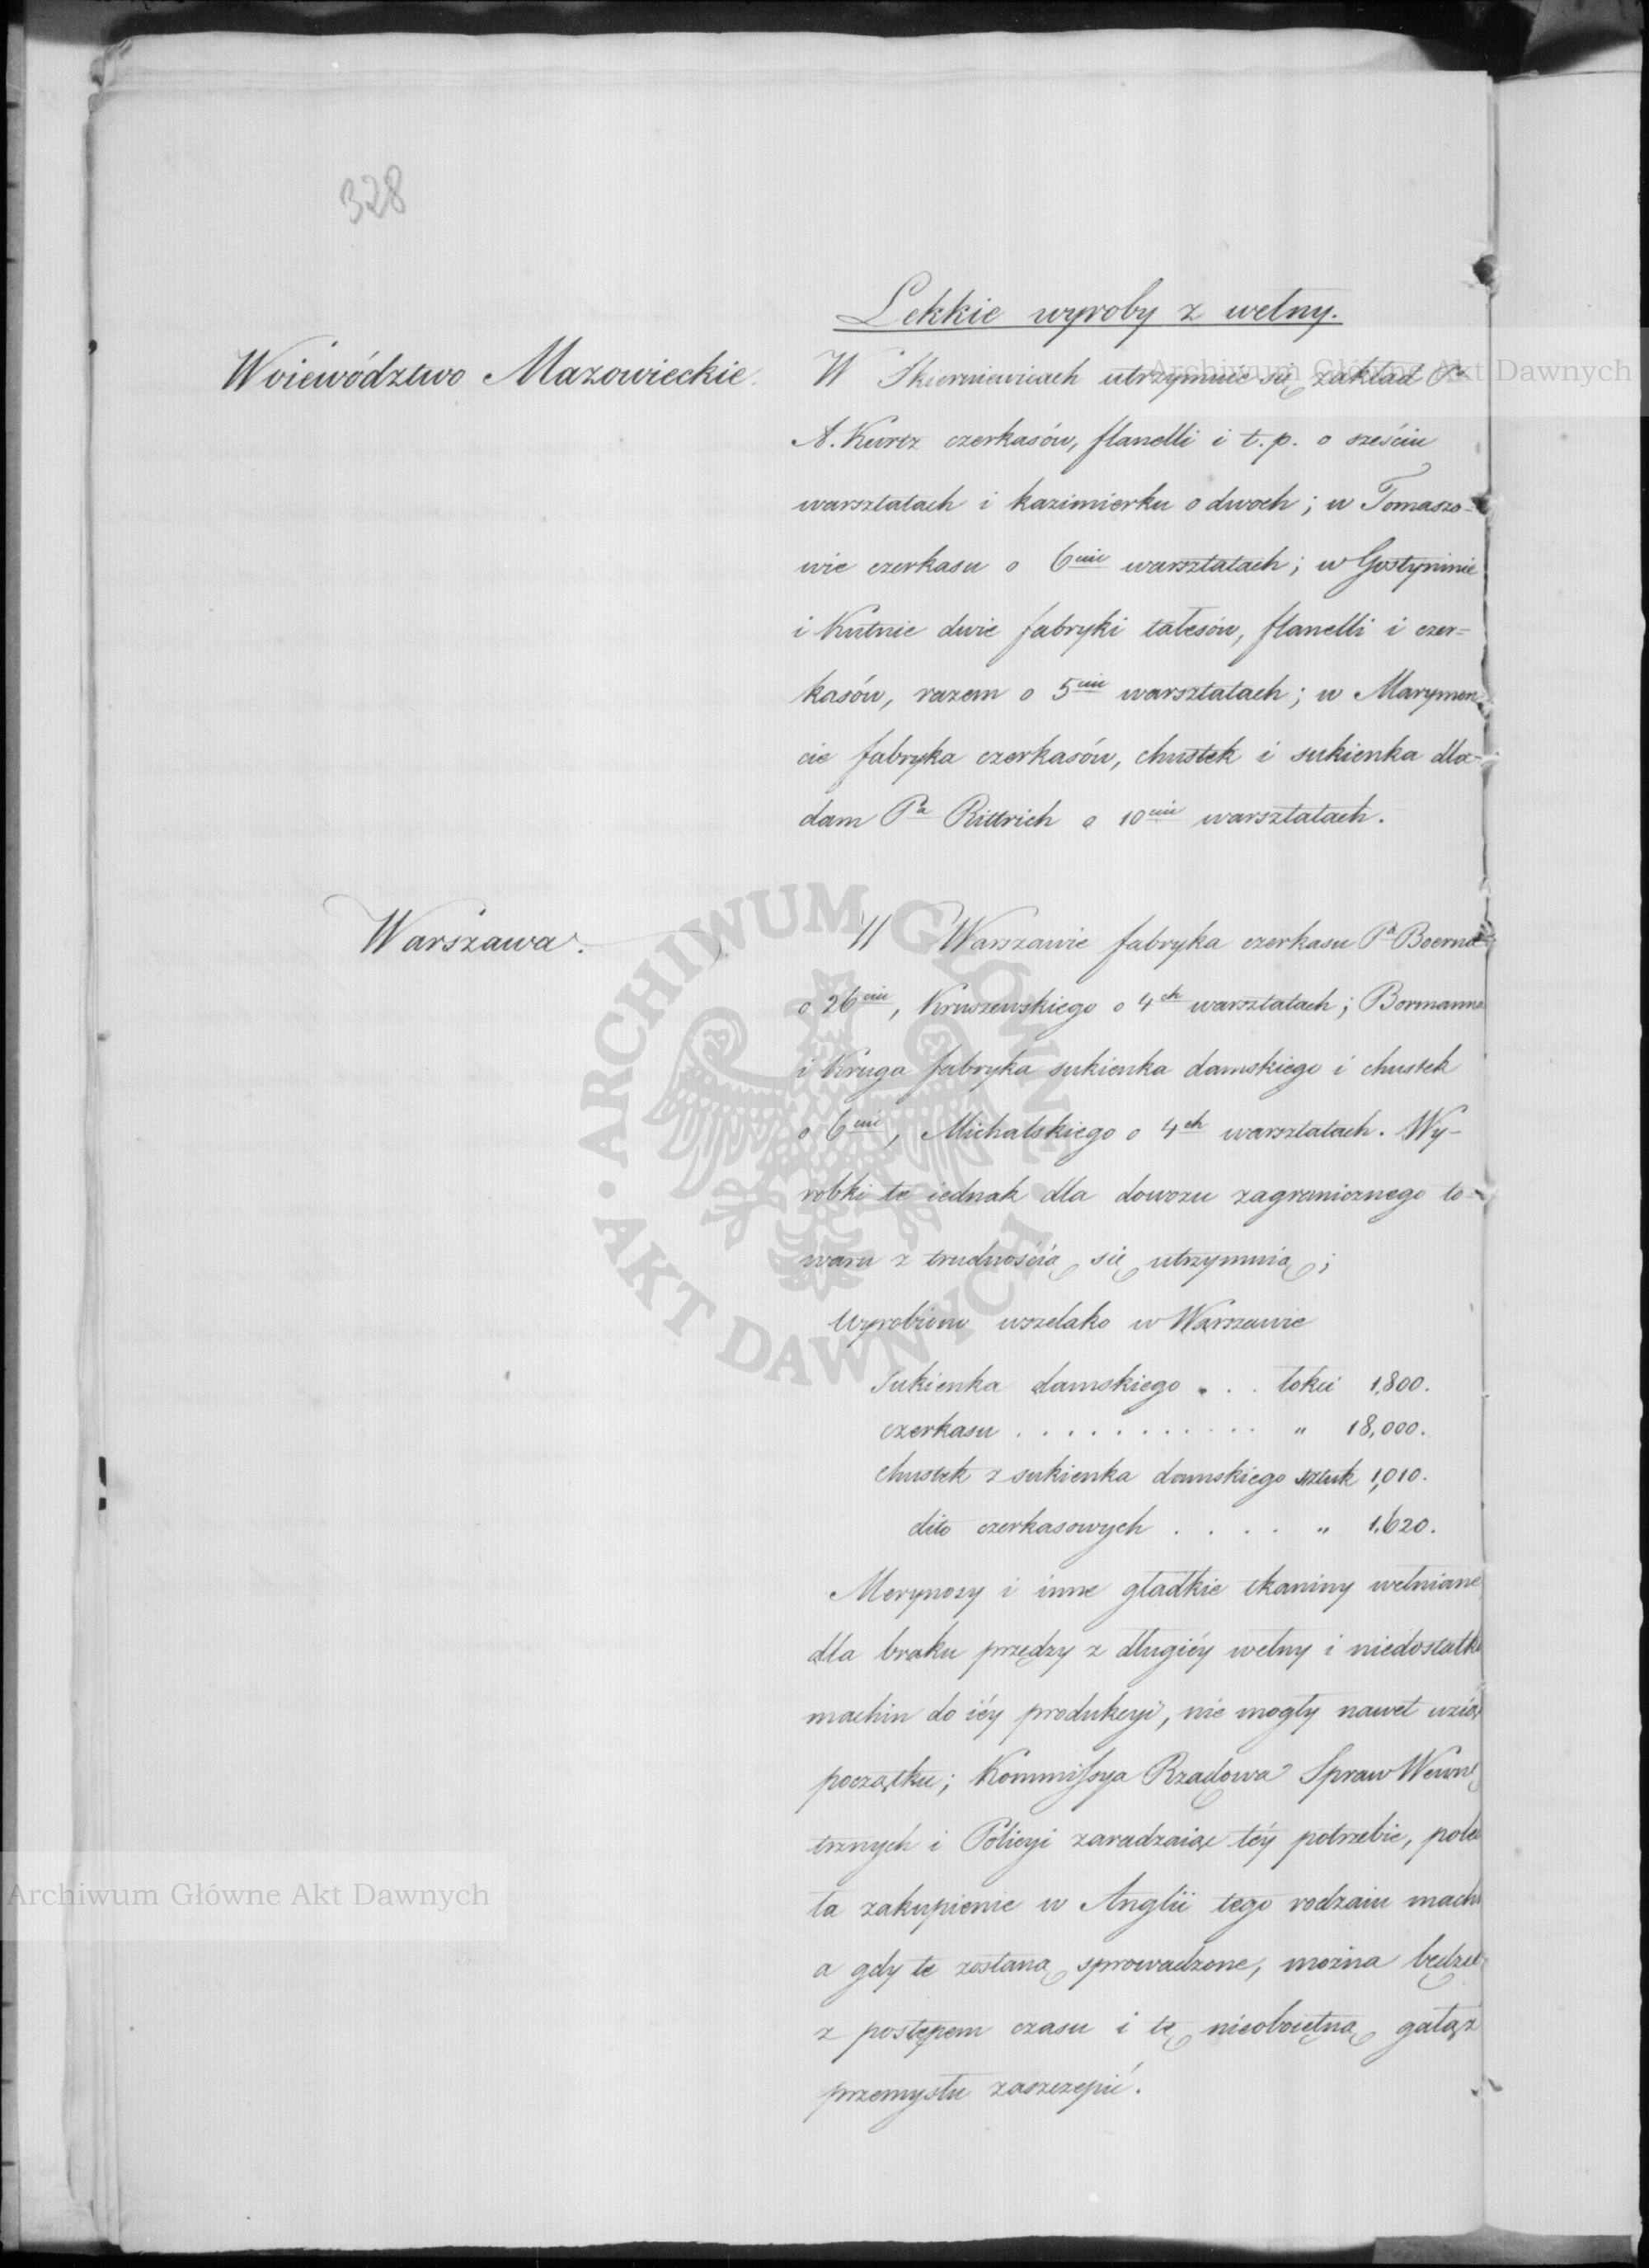 328
Lekkie wyroby z wełny.
Woiewództwo Mazowieckie.
W Skierniewicach utrzymuie się zakład Pa
A. Kurtz czerkasów, flanelli i t. p. o sześciu
warsztatach i kazimierku o dwoch; w Tomaszo=
wie czerkasu o 6ciu warsztatach; w Gostyninie
i Kutnie dwie fabryki talesów, flanelli i czer=
kasów, razem o 5ciu warsztatach; w Marymon
cie fabryka czerkasów, chustek i sukienka dla
dam Pa Rittrich o 10ciu warsztatach.
Warszawa.
W Warszawie fabryka czerkasu Pa Boerner
o 26ciu, Kruszewskiego o 4ch warsztatach; Bormanna
i Kruga fabryka sukienka damskiego i chustek
o 6ciu, Michalskiego o 4ch warsztatach. Wy-
robki te iednak dla dowozu zagranicznego to=
waru z trudnością się utrzymuią;
Wyrobiono wszelako w Warszawie
Sukienka damskiego . . . łokci 1,800.
czerkasu . . . . . . . . . . " 18,000.
chustek z sukienka damskiego sztuk 1,010.
dito czerkasowych . . . . " 1,620.
Merynosy i inne gładkie tkaniny wełniane
dla braku przędzy z długiéy wełny i niedostatk
machin do iéy produkcyi, nie mogły nawet wzią
początku; Kommissya Rządowa Spraw Wewnę
trznych i Policyi zaradzaiąc téy potrzebie, pole
ła zakupienie w Anglii tego rodzaiu mach
a gdy te zostaną sprowadzone, można będzie
z postępem czasu i tę nieoboiętną gałąź
przemysłu zaszczepić.
Archiwum Główne Akt Dawnych
Archiwum Główne Akt Dawnych
ARCHIWUM GŁÓWNE AKT DAWNYCH